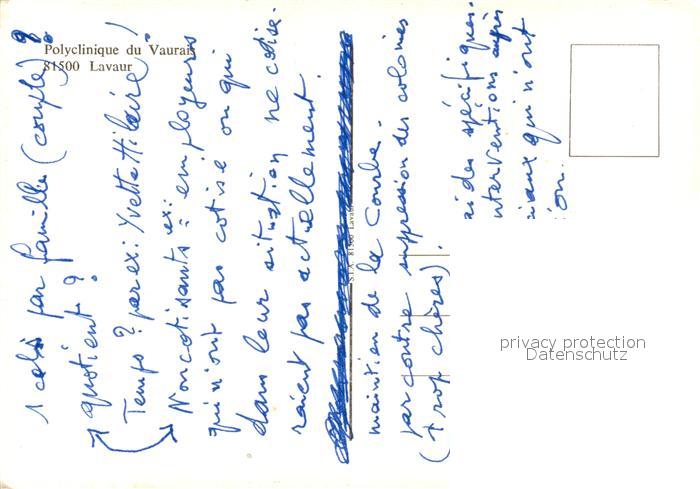 Polyclinique du Vaurais
81500 Lavaur
1 colis par famille (couple) ?
quotient ?
Temps ? par ex: Yvette Hilaire !
Non cotisants = ex: employeurs
qui n'ont pas cotisé ou qui
dans leur situation ne cotise-
raient pas actuellement.
S.I.A. 81500 Lavaur
maintien de la Courbe.
par contre suppression des colonies
(trop chères).
aides spécifiques.
interventions auprès
qui n'ont
privacy protection
Datenschutz